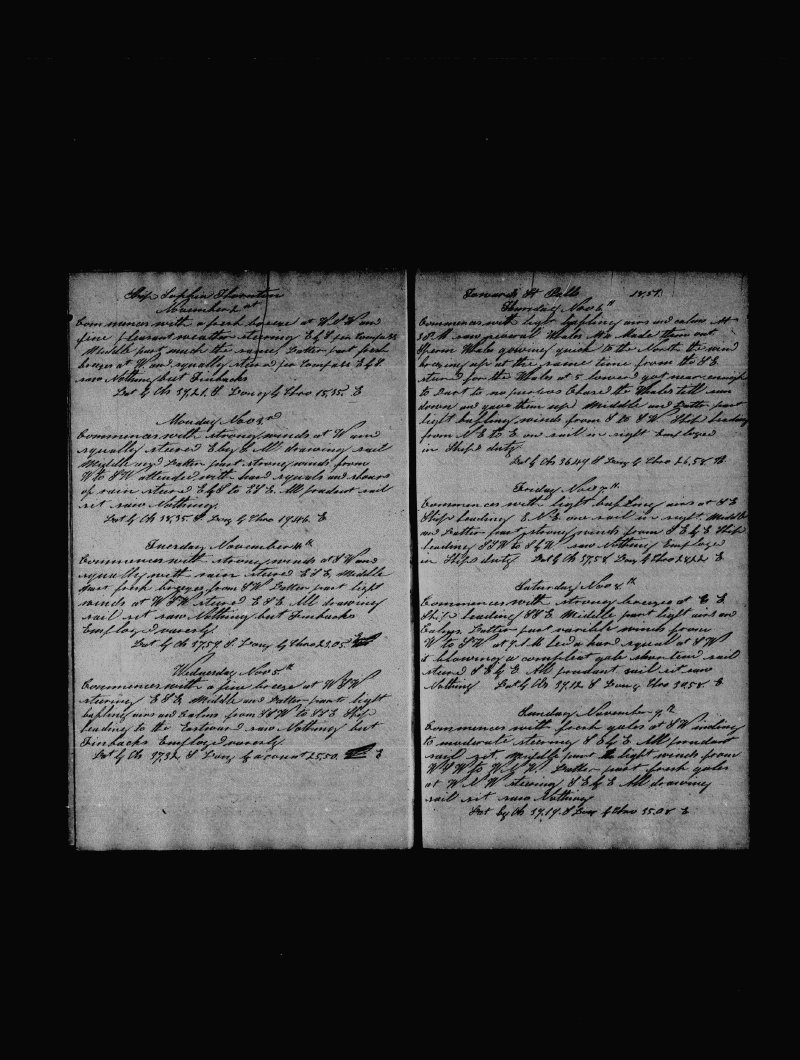 Ship Sophia Thornton
at
November 2
Commences with a fresh breeze at W S W and
fine pleasant weather stearing E by S per Compass
Middle part much the same Latter part fresh
breezes at W and squally steard per Compass E by S
saw Nothing but Finbacks
Lat by Ob 37,21 S Long by Chro 15,35 E
Monday Nov 3rd
Commences with strong winds at W and
squally steard E by S All drawing sail
Middle and Latter part strong winds from
W to S W attended with hard squals and shours
of rain steard E by S to E S E All prudent sail
set saw Nothing
Lat by Ob 38,35 S Long by Chro 19,46 E
Tuesday November 4th
Commences with strong winds at S W and
squally with rain steard E S E Middle
part fresh breezes from S W Latter part light
winds at W S W steard E S E All drawing
sail set saw Nothing but Finbacks
Employed varesly
Lat by Ob 37,59 S Long by Chro 23,05 E
Wednesday Nov 5th
Commences with a fine breeze at W S W
stearing E S E Middle and Latter part light
bafling airs and Calms from S S W to S S E Ship
heading to the Eastward saw Nothing but
Finbacks Employed varesly
Lat by Ob 37,32 S Long by acount 25,50 E
Towards St Pauls 1851
Thursday Nov 6th
Commences with light bafling airs and calms At
3 P M saw several Whales Mx made them out
Sperm Whales gowing quick to the North the wind
breezing up at the same time from the S E
steard for the Whales at 5 lowerd got near enough
to Dart to no purpose Chased the Whales till sun
down and gave them up Middle and Latter part
light bafling winds from S to S W Ship heading
from N E to E one sail in sight Employed
in Ships duty
Lat by Ob 36,49 S Long by Chro 26,58 E
Friday Nov 7th
Commences with light bafling airs at S E
Ship heading E N E one sail in sight Middle
and Latter part strong winds from S E by E Ship
heading S S W to S by W saw Nothing Employed
in Ships duty Lat by Ob 37,58 S Long by Chro 26,22 E
Saturday Nov 8th
Commences with strong breezes at E
Ship heading S S E Middle part light airs and
Calms Latter part varible winds from
W to S W at 9 A M had a hard squal at S W
blowing a compleat gale shortend sail
steard S E by E All prudant sail set saw
Nothing Lat by Ob 37,12 S Long Chro 30,58 E
Sunday November 9th
Commences with fresh gales at S W ending
to moderate stearing S E by E All prudant
sail set Middle part light winds from
W S W to W by N Latter part fresh gales
at W N W stearing S E by E All drawing
sail set saw Nothing
Lat by Ob 37,19 S Long by Chro 35,08 E